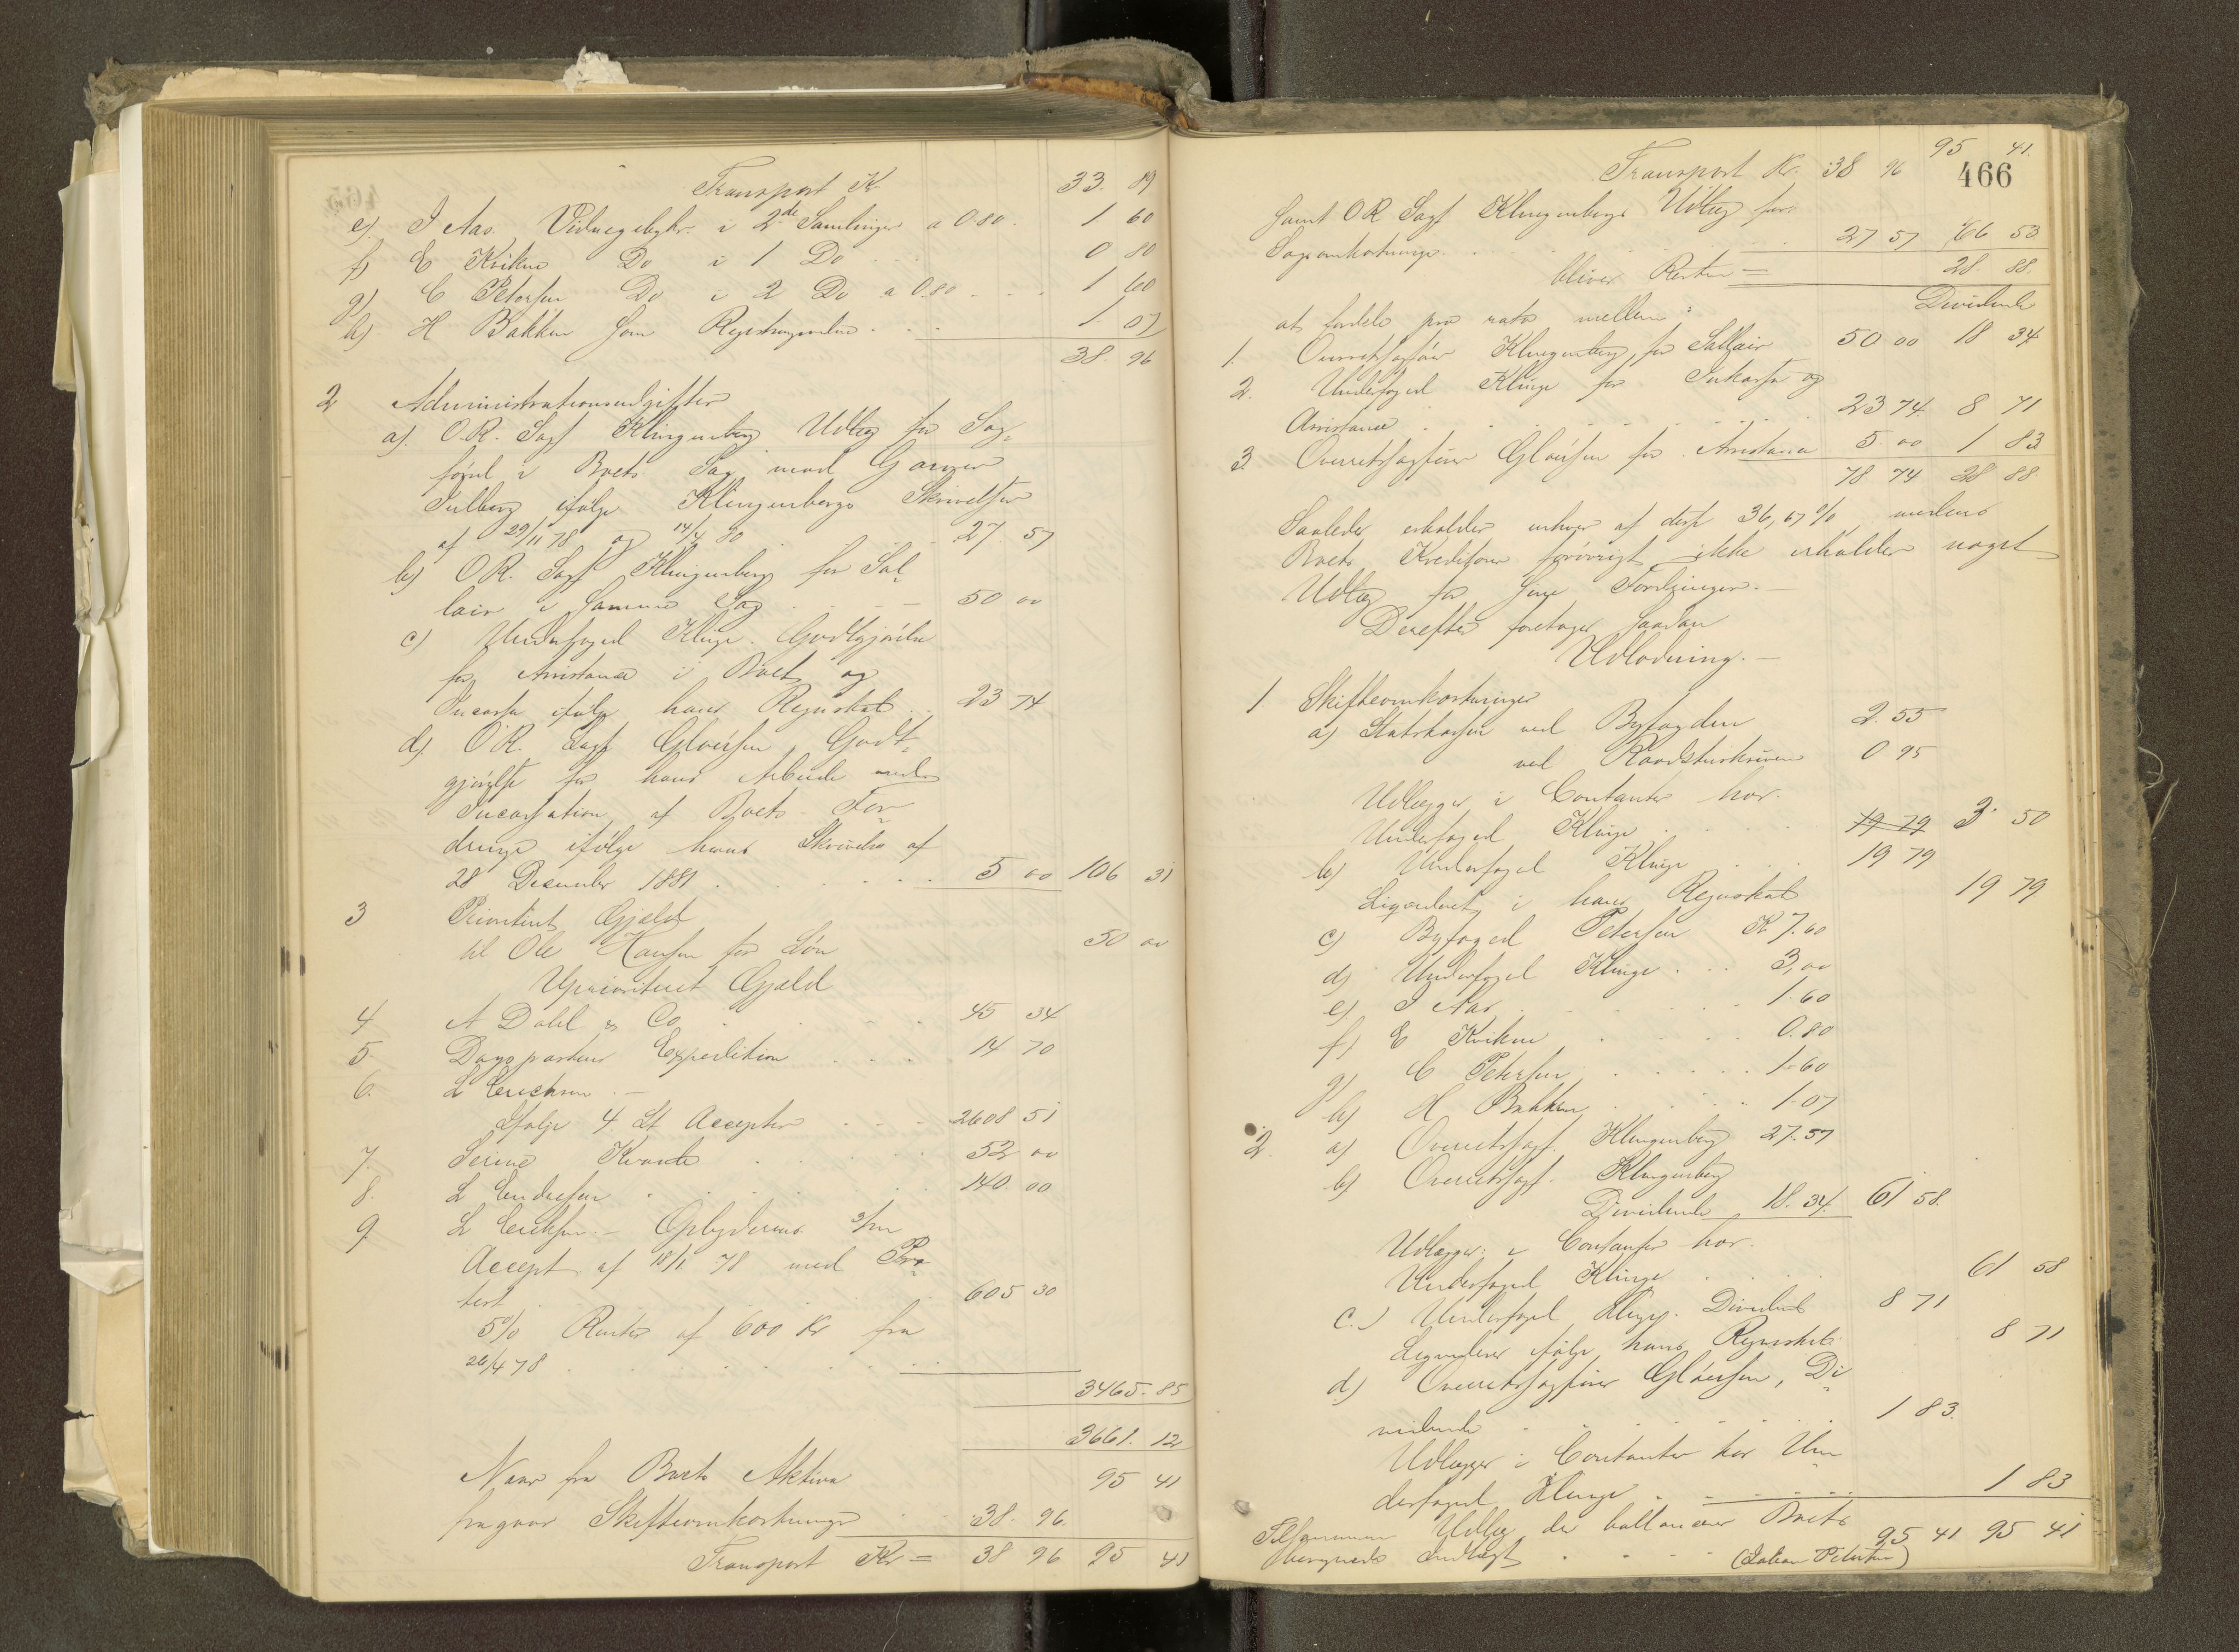 Transport Kr 33. 89
e) I Aas. Vidnegebyhr. i 2de Samlinger a 0.80. 1 60
f) E Kvikne Do i 1 Do 0 80
g) C Petersen Do i 2 Do a 0.80 1 60
h) H Bakken som Registringsvidne 1. 07
38. 96
2 Administrationsudgifter
a). O.R. Sagf Klingenberg Udlæg for Sag-
førsel i Boets Sag mod
ifølge Klingenbergs Skrivelser
af 29/11 78 og 14/4 80 27. 57
b) O.R. Sagf Klingenberg for Sal-
lair i samme Sag 50 00
c) Underfoged Klinge. Godtgjørelse
for Assistance i Boet og
Incasso ifølge hans Regnskab 23 74
d). O.R. Sagf Gløersen, Godt-
gjørelse for hans Arbeide med
Incassation af Boets For-
dringe ifølge hans Skrivelse af
28 December 1881 5 00 106 31
3 Prioritert Gjæld
til Ole Hansen for Løn 50 00
Uprioritert Gjæld
4 A Dahl & Co 45 34
5. Dagspostens Expedition 14 70
6. L Erichsen. —
Ifølge 4. St. Accepter 2608 51
7. Serine Kvande 52 00
8. L Endresen 140. 00
9. L Erichsen. — Opbyderens 3/m
Accept af 18/1 78 med Pro-
test 605 30
5% Renter af 600 Kr fra
26/4 78
3465. 85
3661. 12
Naar fra Boets Aktiva 95 41
fragaar Skifteomkostninger 38. 96.
Transport Kr = 38 96 95 41
466
95 41.
Transport Kr. 38 96
samt O R Sagf Klingenbergs Udlæg for
Sagsomkostninger 27 57 66 53
bliver Resten = 28. 88.
at fordele pro rato mellem: Dividende
1. Overretssagfører Klingenberg, for Sallair 50 00 18 34
2. Underfoged Klinge for Inkasso og
Assistance 23 74 8 71
3 Overretssagfører Gløersen for Assistance 5. 00 1 83
78 74 28 88
Saaledes erholder enhver af disse 36,67%, medens
Boets Kreditorer forøvrigt ikke erholder noget
Udlæg for sine Fordringer. —
Derefter foretages saadan
Udlodning. —
1. Skifteomkostninger
a) Statskassen ved Byfogden 2. 55
ved Raadstueskriveren 0 95
Udlægger i Contanter hos.
Underfoged Klinge 19 79 3. 50
b) Underfoged Klinge 19 79
Liqvideret i hans Regnskab 19 79
c) Byfoged Petersen Kr 7. 60
d) Underfoged Klinge 3,00
e) I Aas 1. 60
f) E Kvikne 0. 80
g) C Petersen 1. 60
h) H Bakken 1. 07
2. a) Overretssagf. Klingenberg 27. 57
b) Overretssagf. Klingenberg
Dividende 18. 34. 61 58.
Udlægges i Contanter hos.
Underfoged Klinge 61 58
c.) Underfoged Klinge. Dividende 8 71
Liqvideres ifølge hans Regnskab 8 71
d) Overretssagfører Gløersen, Di-
vidende 1 83.
Udlægges i Contanter hos Un-
derfoged Klinge 1 83
Tilsammen Udlæg, der ballancerer Boets
beregnede Indtægt 95 41 95 41
(Johan Petersen)